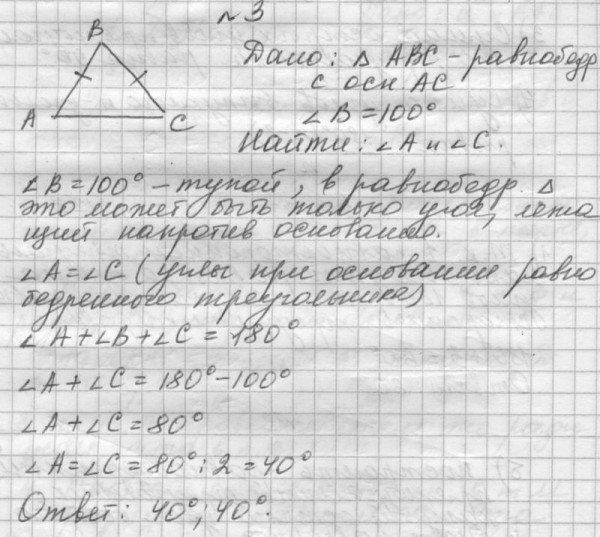 №3
B
A
C
Дано: Δ ABC – равнобедр
с осн. AC
∠B = 100°
Найти: ∠A и ∠C.
∠B = 100° – тупой, в равнобедр. Δ
это может быть только угол, лежа
щий напротив основания.
∠A = ∠C (углы при основании равно
бедренного треугольника)
∠A + ∠B + ∠C = 180°
∠A + ∠C = 180° – 100°
∠A + ∠C = 80°
∠A = ∠C = 80° : 2 = 40°
Ответ: 40°; 40°.